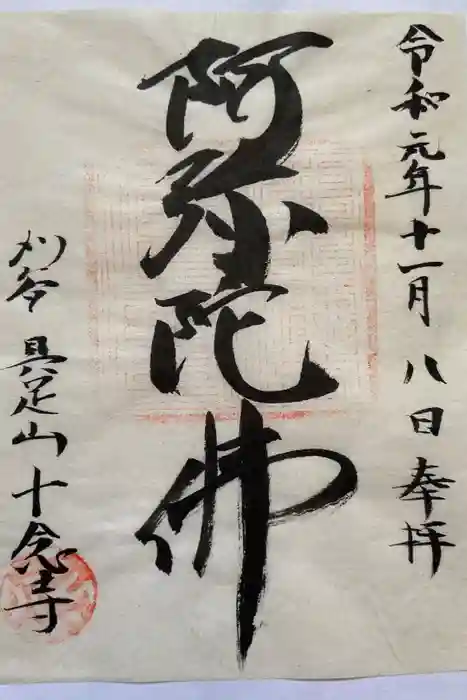 令和元年十一月八日奉拝
阿弥陀佛
刈谷具足山十念寺